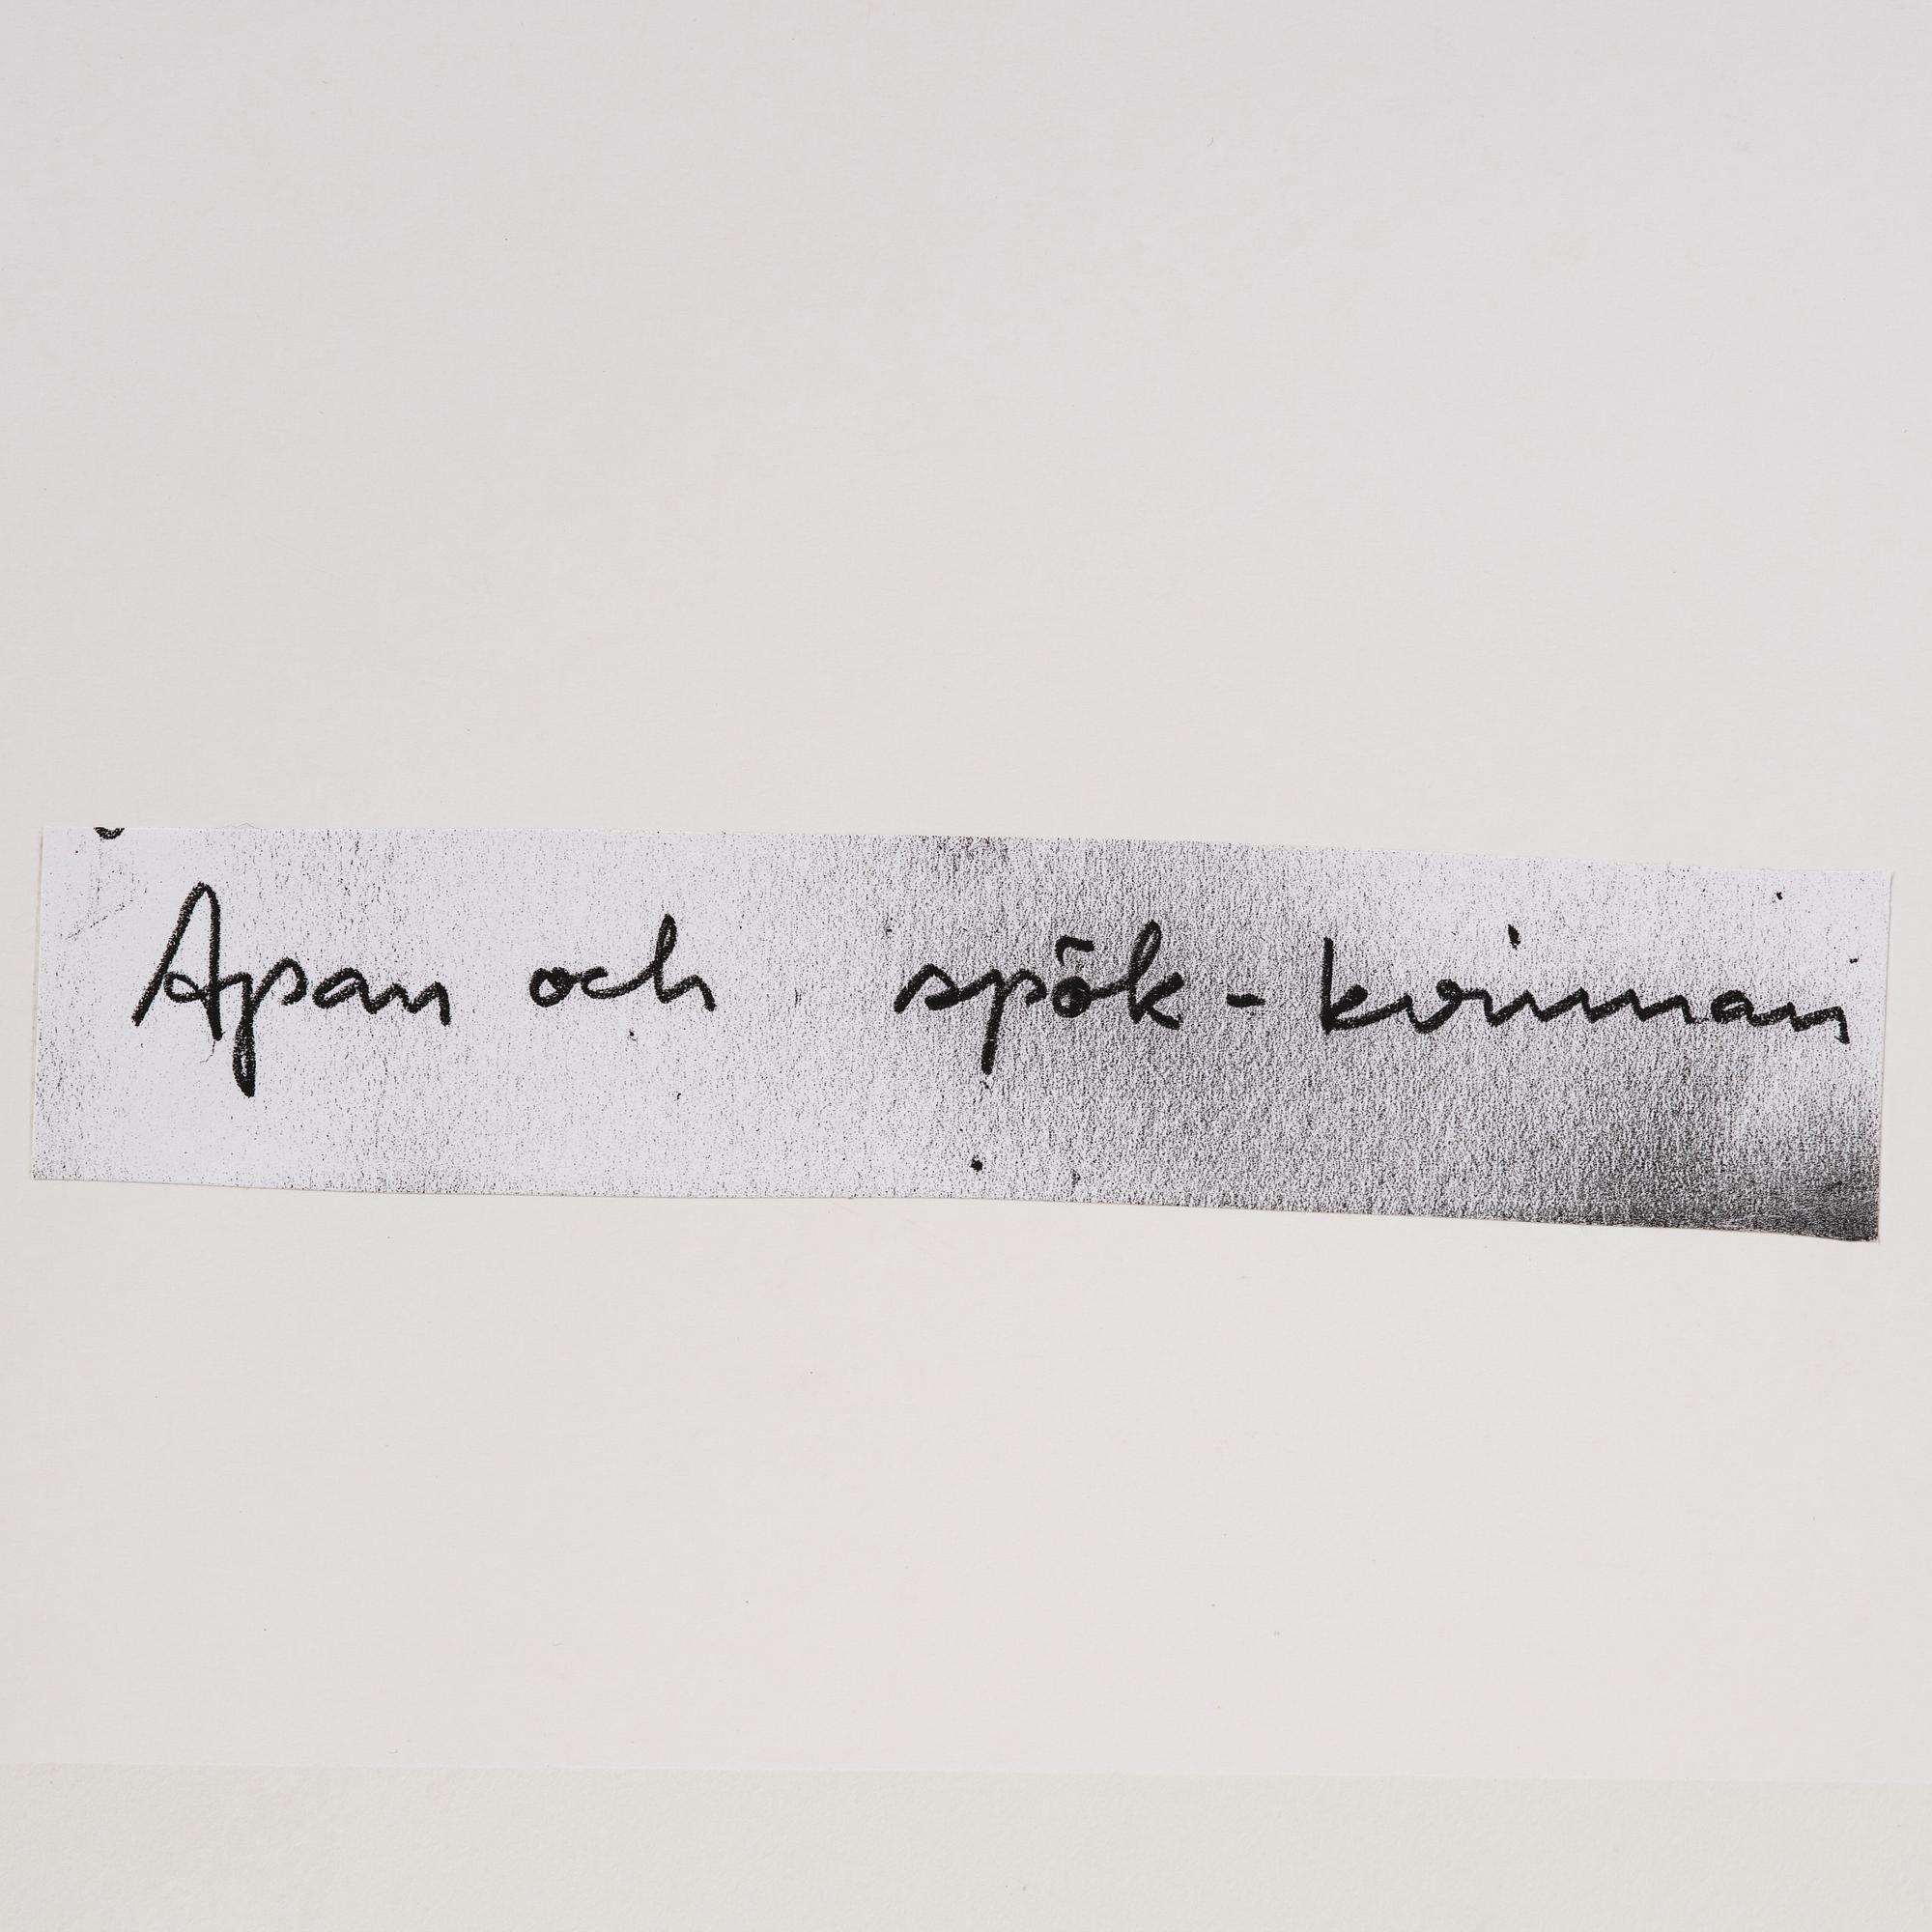 Apan och spök-kvinnan